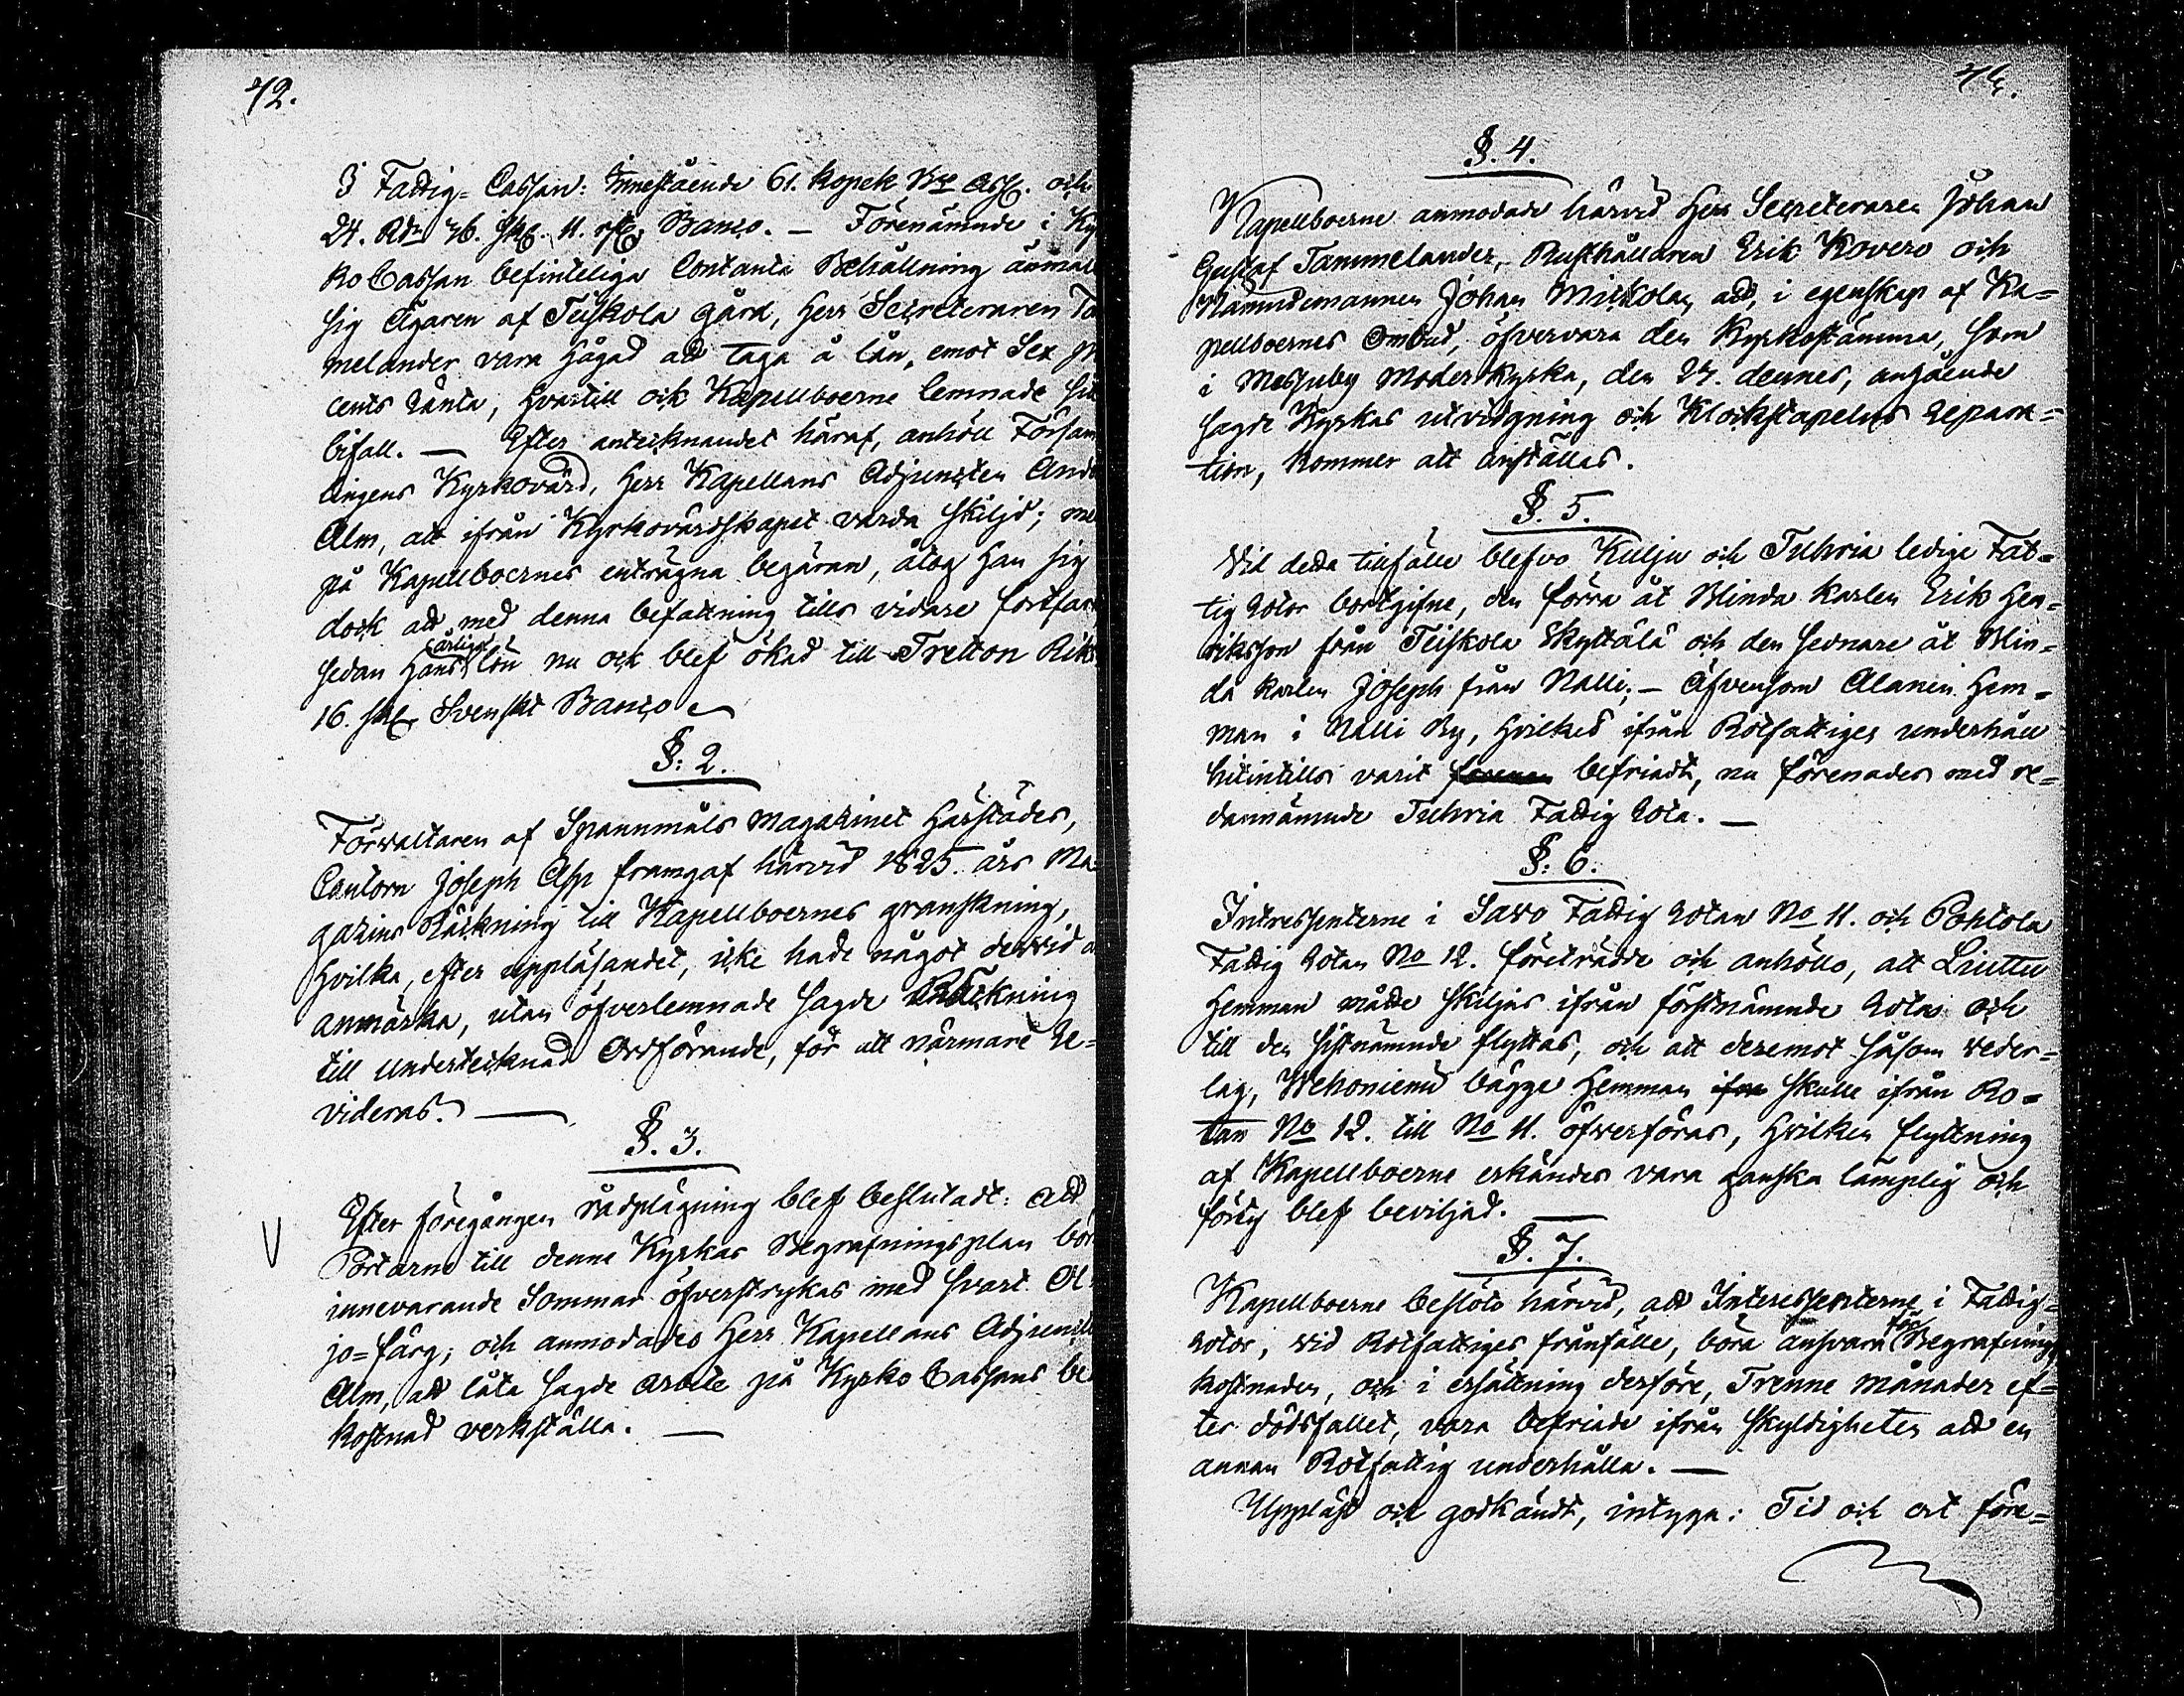 42.
I Fattig-Cassan: Innestående 61. kopek B:co Ass. och
24. Rdr 36. sk. 11. rst. Banco. — Förenämnde i Ky
ko Cassan befinteliga Contanta Behållning anmäl
sig Ägaren af Teiskola gård, Herr Secreteraren Ta
melander vara hågad att taga å lån, emot Sex pr
cents Ränta, hvartill ock Kapellboerne lemnade sitt
bifall. — Efter antecknandet häraf, anhöll Försam
lingens Kyrkovärd, Herr Kapellans Adjuncten And
Alm, att ifrån Kyrkovärdskapet varda skiljd; me
på Kapellboernes enträgna begäran, åtog Han sig
dock att med denna befattning tills vidare fortfar
sedan Hans årliga lön nu ock blef ökad till Tretton Rik
16. sk. Svenskt Banco
§. 2.
Förvaltaren af Spannmåls Magazinet Härstädes,
Cantorn Joseph Asp framgaf härvid 1825. års Ma
gazins Räkning till Kapellboernes granskning,
Hvilka, efter uppläsandet, icke hade något dervid a
anmärka, utan öfverlemnade sagde Räkning
till Undertecknad Ordförande, för att närmare Re=
videras. —
§. 3.
Efter föregången rådplägning blef beslutadt: att
Portarne till denne Kyrkas Begrafningsplan bör
innevarande Sommar öfverstrykas med svart Ol
jo=färg; och anmodades Herr Kapellans Adjunct
Alm, att låta sagde arbete på Kyrko Cassans be
kostnad verkställa. —
§. 4.
Kapellboerne anmodade härvid Herr Secreteraren Johan
Gustaf Tammelander, Rusthållaren Erik Kovero och
Nämndemannen Johan Mickola, att, i egenskap af Ka=
pellboernes Ombud, öfvervara den Kyrkostämma, som
i Messuby Moderkyrka, den 27. dennes, angående
sagde Kyrkas utvidgning och Klockstapelns repara=
tion, kommer att anställas.
§. 5.
Vid detta tillfälle blefvo Kulju och Tuhria ledige Fat=
tig Rotor bortgifne, den förra åt Blinda karlen Erik Hen=
riksson från Teiskola Skyttälä och den sednare åt Blin=
da karlen Joseph från Nalli; — Äfvensom Alanen Hem=
man i Nalli By, Hvilket ifrån Rotfattiges underhåll
hitintills varit befriadt, nu förenades med re=
dannämnde Tuhria Fattig Rota. —
§. 6.
Intressenterne i Savo Fattig Rotan No 11. och Pohtola
Fattig Rotan No 12. företrädde och anhöllo, att Liuttu
Hemman måtte skiljas ifrån förstnämnde Rotas och
till den sistnämnde flyttas, och att deremot såsom veder=
lag, Wehoniemi bägge Hemman ifrn skulle ifrån Ro=
tan No 12. till No 11. öfverföras, Hvilken flyttning
af Kapellboerne erkändes vara ganska lämplig och
förty blef beviljad. —
§. 7.
Kapellboerne beslöto härvid, att Interessenterne i Fattig=
Rotor, vid Rotfattiges frånfälle, böra ansvara för Begrafnings
kostnaden, och i ersättning derföre, Trenne Månader ef=
ter dödsfallet, vara befriade ifrån skyldigheten att en
annan Rotfattig underhålla. —
Uppläst och godkändt, intyga: Tid och ort före=